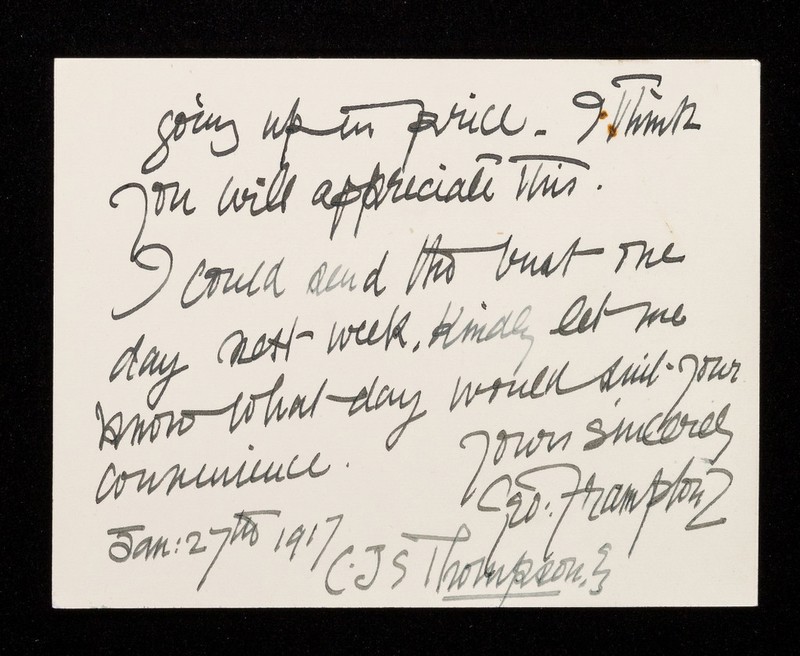 going up in price. I think
you will appreciate this.
I could send the bust one
day next week. Kindly let me
know what day would suit your
convenience.
Yours sincerely
Geo. Frampton
Jan: 27th 1917
C.J S Thompson.